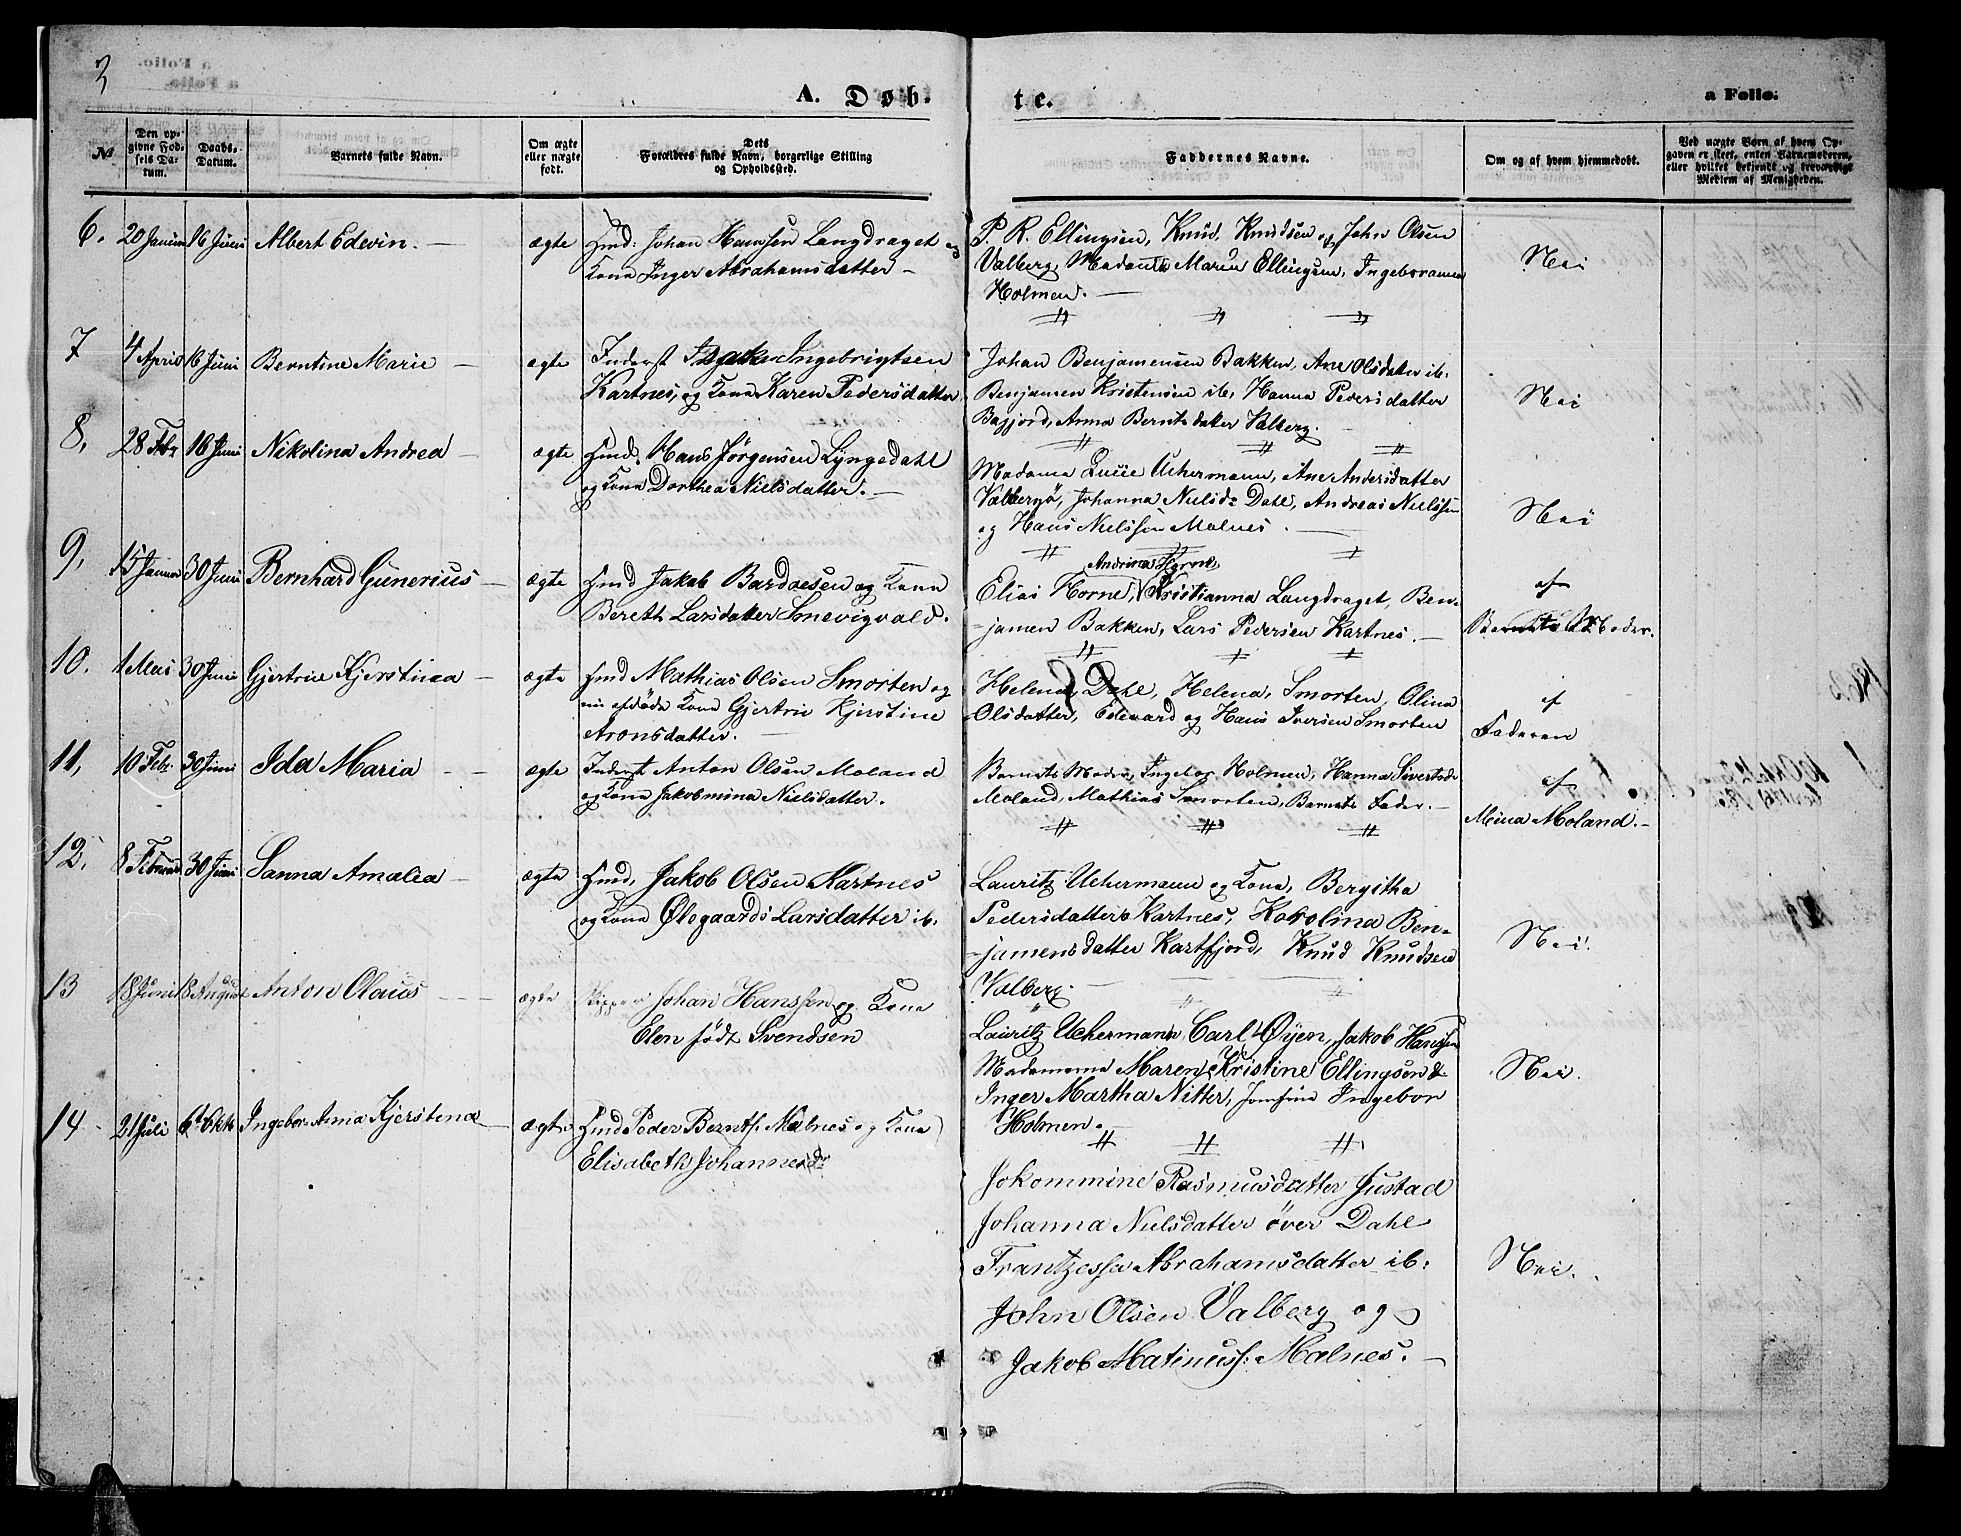 3
A. Døb-
te.
a Folio.
№
Den opgivne Fødsels Datum.
Daabs-Datum.
Barnets fulde Navn.
Om ægte eller uægte født.
Dets Forældres fulde Navn, borgerlige Stilling og Opholdssted.
Faddernes Navne.
Om og af hvem hjemmedøbt.
Ved uægte Børn af hvem Opgaven er skeet, enten Barnemoderen, eller hvilket bekjendt og troværdigt Medlem af Menigheden.
6. 20 Januar 16 Juni Albert Edevin. — ægte Gmd: Johan Hanssen Langdraget og
Kone Inger Abrahamsdatter —
P. R. Ellingsen, Knud Knudsen og John Olsen
Valberg, Madame Maren Ellingsen, Ingeboranna
Holmen. —
Nei
7 4 April 16 Juni Berntine Marie — ægte Inderst Ingebrigtsen
Kartnes, og Kone Karen Pedersdatter
Johan Benjamensen Bakken, Ane Olsdatter ib.
Benjamen Kristensen ib, Hanna Pedersdatter
Bagjord, Anna Berntsdatter Valberg.
Nei
8. 28 Febr 16 Juni Nikolina Andrea — ægte Gmd. Hans Jørgensen Lyngedahl
og Kone Dorthea Nielsdatter. —
Madame Luise Uchermann, Ane Andersdatter
Valbergø, Johanna Nielsd: Dahl, Andreas Nielssen
og Hans Nielssen Malnes.
Nei
9. 15 Januar 30 Juni Bernhard Gunerius — ægte Gmd Jakob Bardoesen og Kone
Bereth Larsdatter Smevigvald.
Andrina Horne,
Elias Horne, Kristianna Langdraget, Ben-
-jamen Bakken, Lars Pedersen Kartnes. —
af
Barnets Moder.
10. 1 Mai 30 Juni Gjertrine Kjerstina — ægte Gmd Mathias Olsen Smorten og
nu afdøde Kone Gjertrine Kjerstine
Aronsdatter.
Helena Dahl, Helena Smorten, Olina
Olsdatter, Edevard og Hans Iversen Smorten
af
Faderen
11, 10 Febr. 30 Juni Ida Maria — ægte Inderst Anton Olsen Moland
og Kone Jakobmina Nielsdatter.
Barnets Moder, Ingebor Holmen, Hanna Sivertsd.
Moland, Mathias Smorten, Barnets Fader. —
af
Mina Moland. —
12. 8 Februar 30 Juni Sanna Amalia — ægte Gmd, Jakob Olsen Kartnes
og Kone Ølegaards Larsdatter ib.
Lauritz Uchermann og Kone, Bergitha
Pedersdatter Kartnes, Karolina Ben-
-jamensdatter Kartfjord, Knud Knudsen
Valberg.
Nei.
13 18 Juni 18 August Anton Olaus — ægte Johan Hanssen og Kone
Elen født Svendsen
Lauritz Uchermann, Carl Øyen, Jakob Hanssen
Madamerne Maren Kristine Ellingsen &
Inger Martha Nitter, Jomfrue Ingebor
Holmen.
Nei.
14 21 Juli 6 Okt Ingebor Anna Kjerstena ægte Gmd Peder Bernts: Malnes og Kone
Elisabeth Johannesd:
Jokommine Rasmusdatter Justad
Johanna Nielsdatter över Dahl
Frantzessa Abrahamsdatter ib.
John Olsen Valberg og
Jakob Matinuss: Malnes. —
Nei.